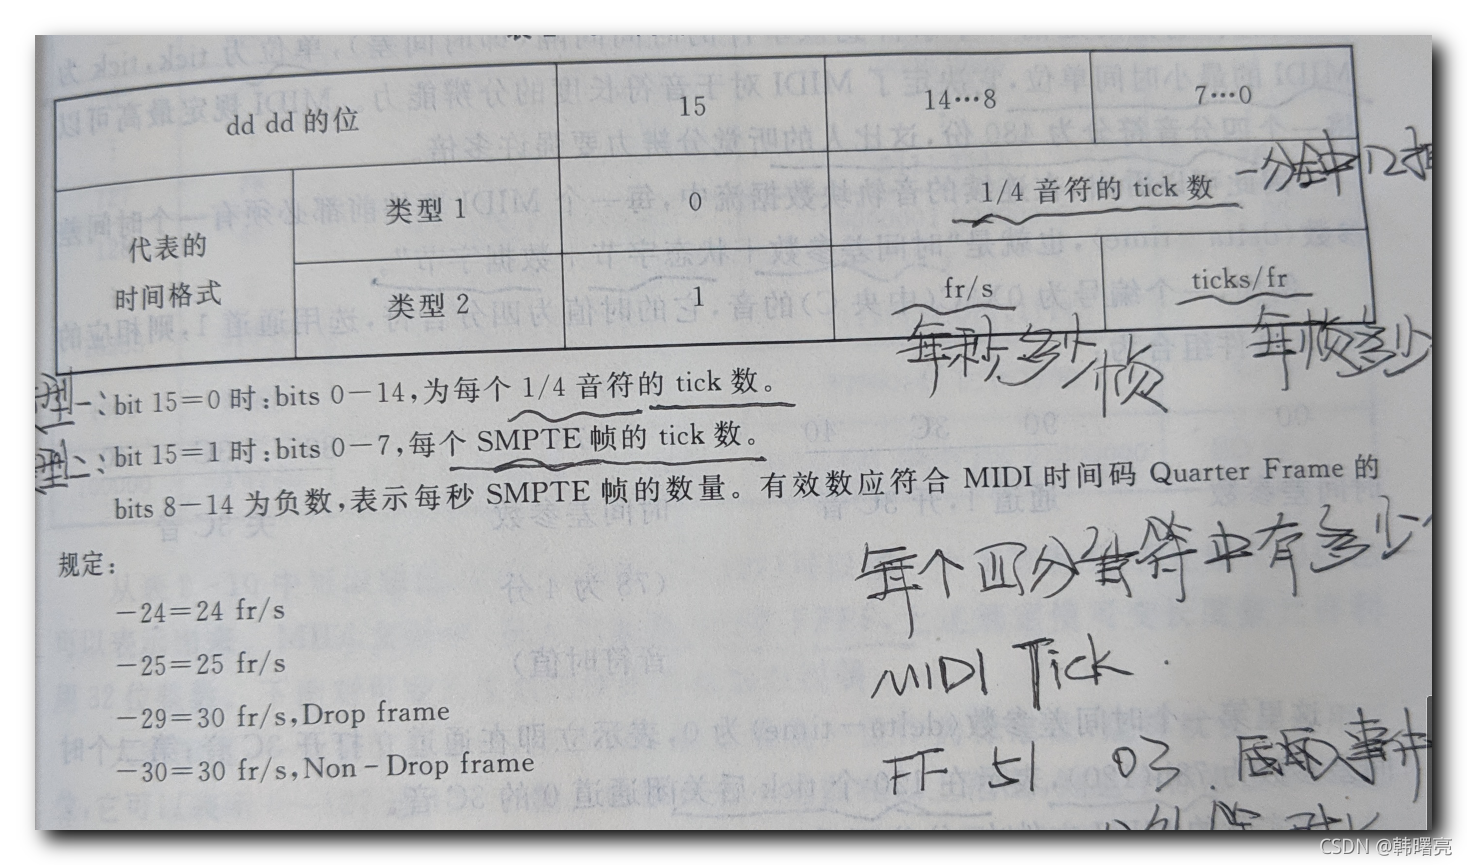 dd dd 的位 15 14…8 7…0
代表的
时间格式
类型 1 0 1/4 音符的 tick 数 一分钟 12
类型 2 1 fr/s ticks/fr
每秒多少帧 每帧多少
型一:bit 15=0 时:bits 0-14,为每个 1/4 音符的 tick 数。
型二:bit 15=1 时:bits 0-7,每个 SMPTE 帧的 tick 数。
bits 8-14 为负数,表示每秒 SMPTE 帧的数量。有效数应符合 MIDI 时间码 Quarter Frame 的
规定:
每个四分音符中有多少
-24=24 fr/s
-25=25 fr/s
MIDI Tick.
-29=30 fr/s,Drop frame
-30=30 fr/s,Non-Drop frame
FF 51 03. 事件
CSDN @韩曙亮